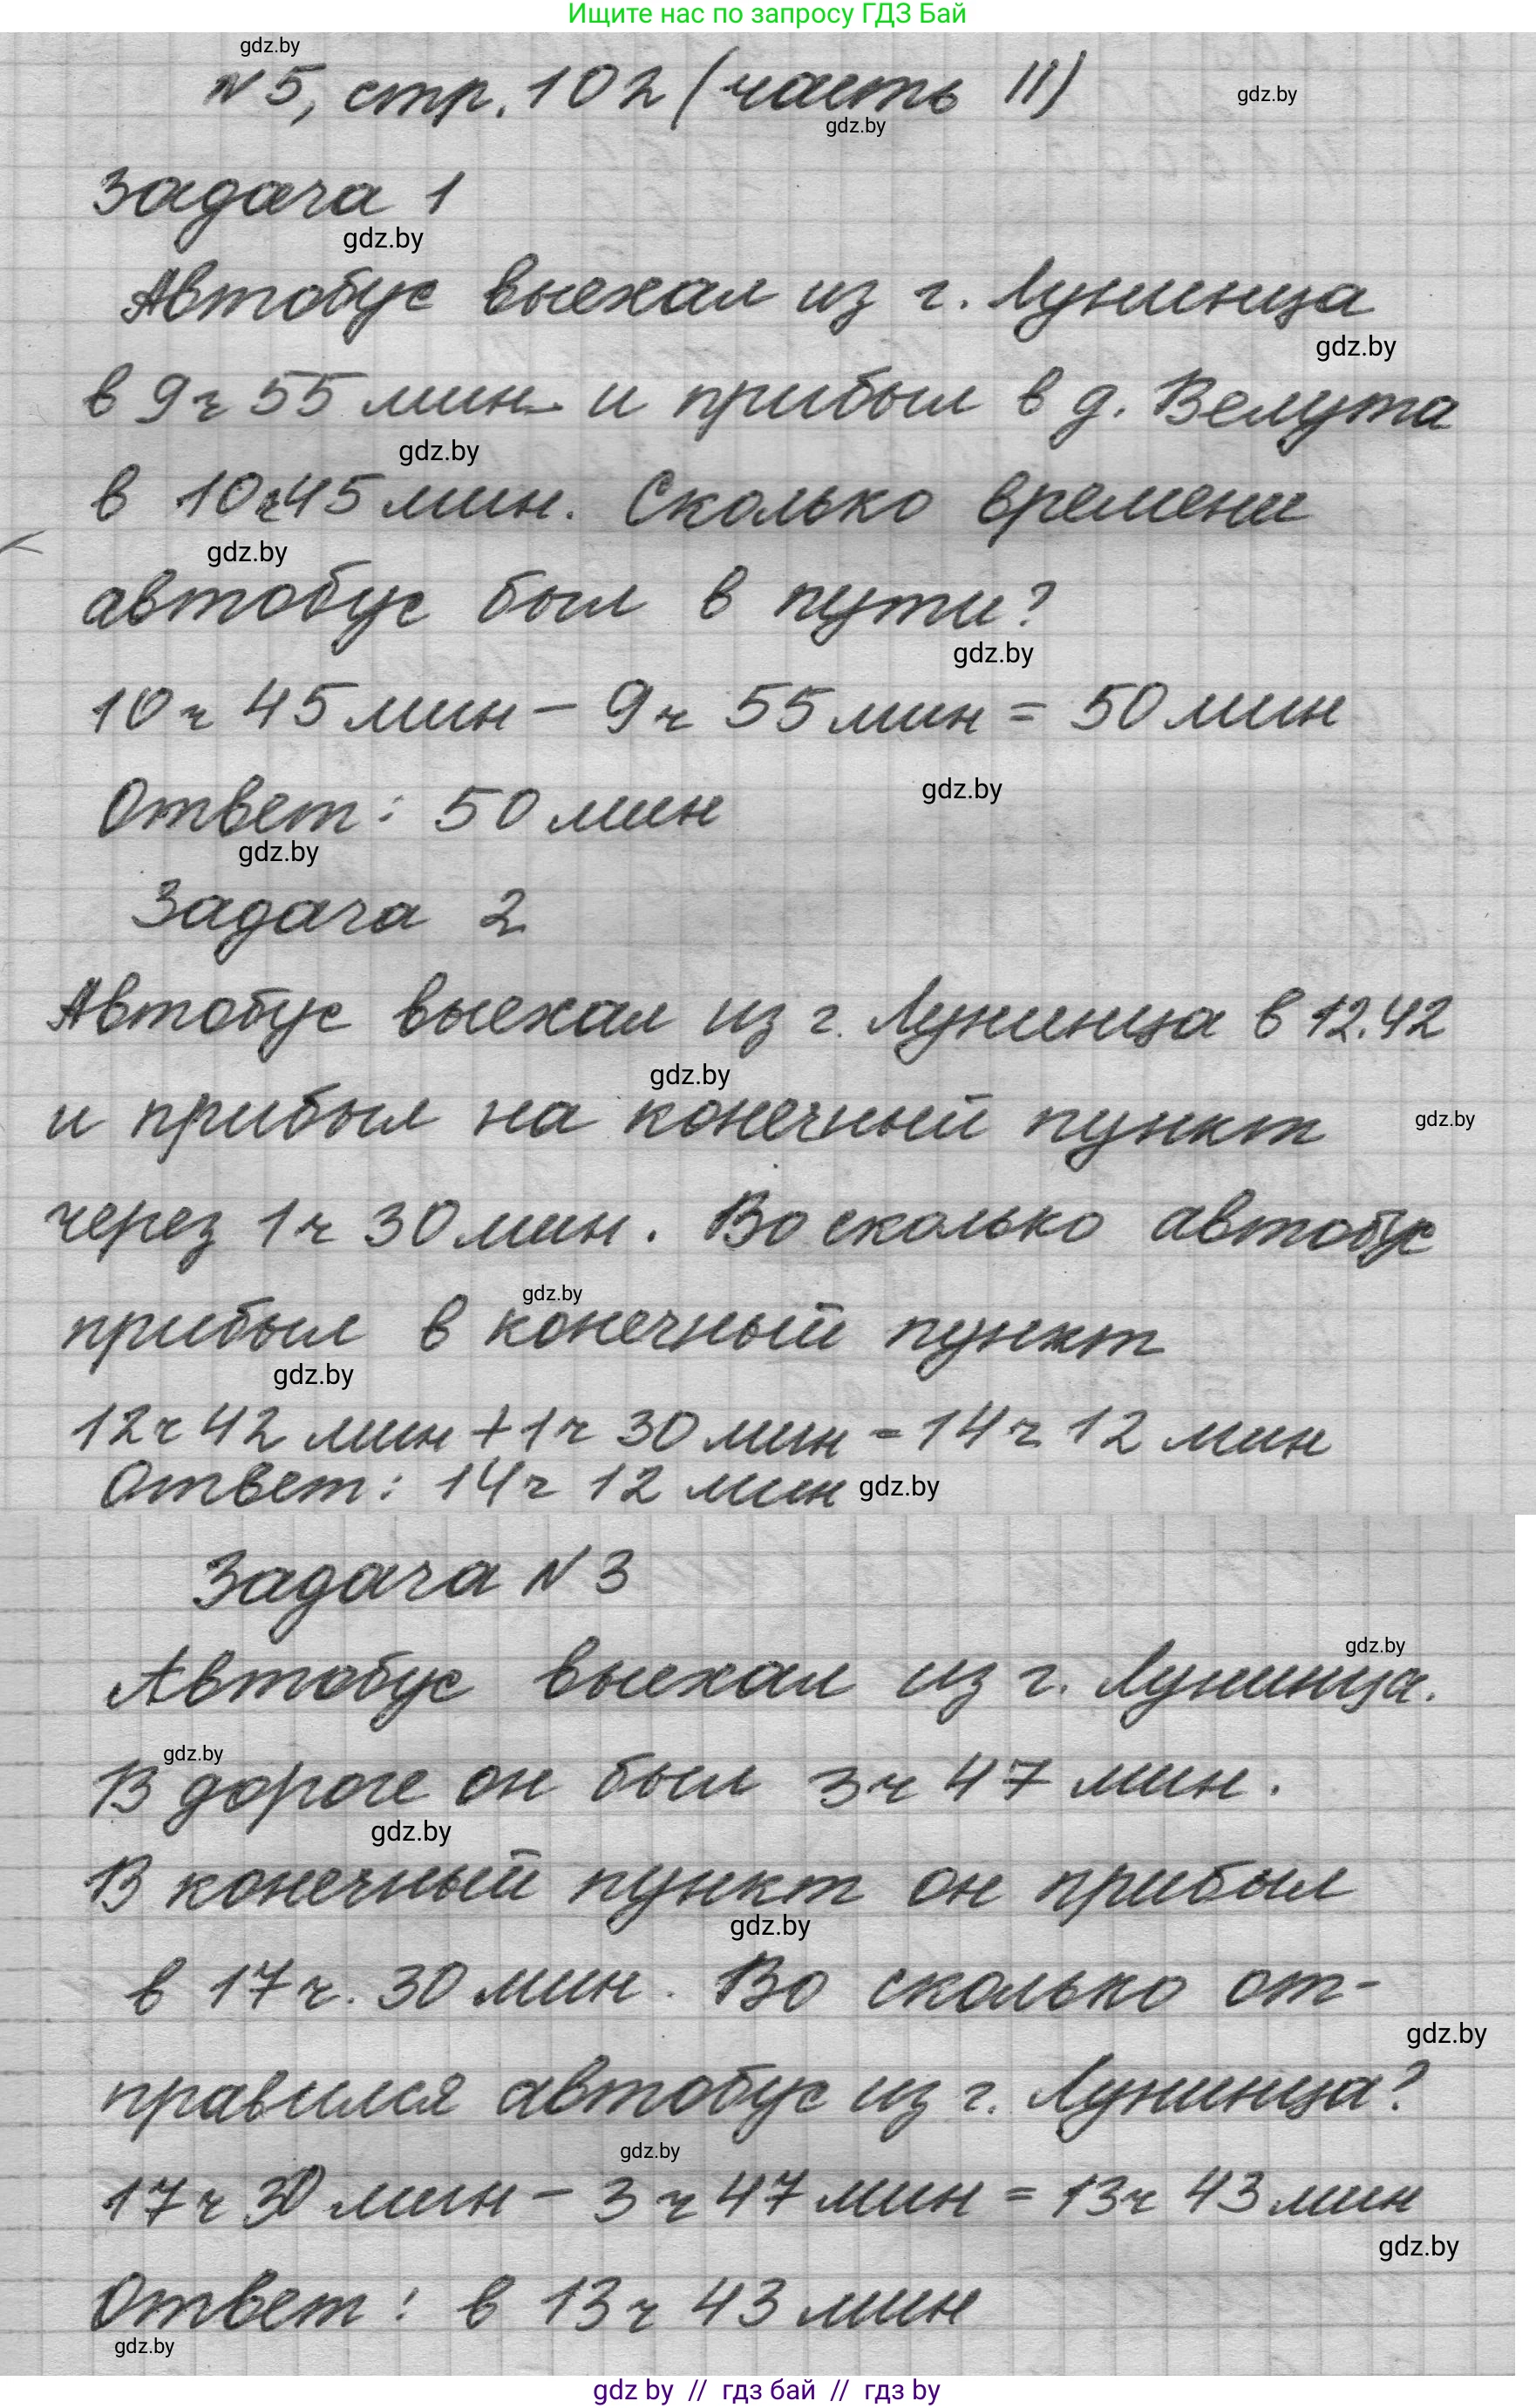 Ищите нас по запросу ГДЗ Бай
gdz.by
N5, стр. 102 (часть II)
gdz.by
gdz.by
Задача 1
gdz.by
Автобус выехал из г. Лунинца
gdz.by
в 9 ч 55 мин. и прибыл в д. Велута
gdz.by
в 10 ч 45 мин. Сколько времени
gdz.by
автобус был в пути?
gdz.by
10 ч 45 мин – 9 ч 55 мин = 50 мин
gdz.by
Ответ: 50 мин
gdz.by
Задача 2
Автобус выехал из г. Лунинца в 12.42
gdz.by
и прибыл на конечный пункт
gdz.by
через 1 ч 30 мин. Во сколько автобус
gdz.by
прибыл в конечный пункт
gdz.by
12 ч 42 мин + 1 ч 30 мин = 14 ч 12 мин
Ответ: 14 ч 12 мин
gdz.by
Задача N 3
gdz.by
Автобус выехал из г. Лунинца.
gdz.by
В дороге он был 3 ч 47 мин.
gdz.by
В конечный пункт он прибыл
gdz.by
в 17 ч. 30 мин. Во сколько от-
gdz.by
правился автобус из г. Лунинца?
gdz.by
17 ч 30 мин – 3 ч 47 мин = 13 ч 43 мин
gdz.by
Ответ: в 13 ч 43 мин
gdz.by
gdz by // гдз бай // гдз by